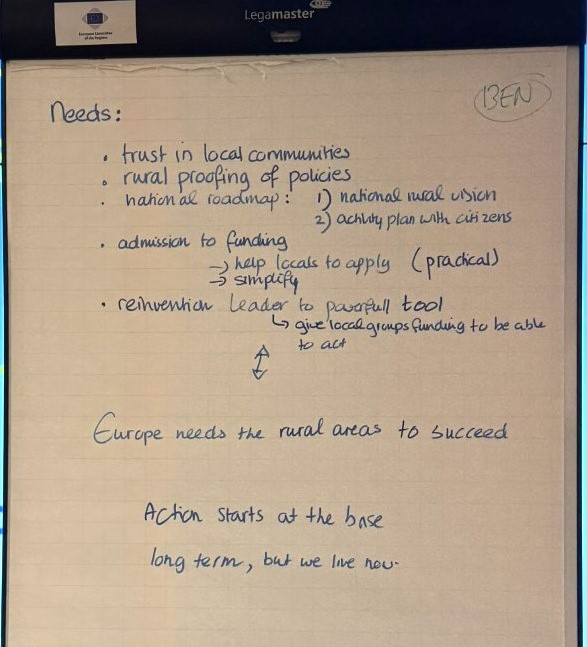 Legamaster
European Committee
of the Regions
BEN
Needs:
• trust in local communities
• rural proofing of policies
• national roadmap: 1) national rural vision
2) activity plan with citizens
• admission to funding
→ help locals to apply (practical)
→ simplify
• reinvention Leader to powerfull tool
↳ give local groups funding to be able
to act
↕
Europe needs the rural areas to succeed
Action starts at the base
long term, but we live now.